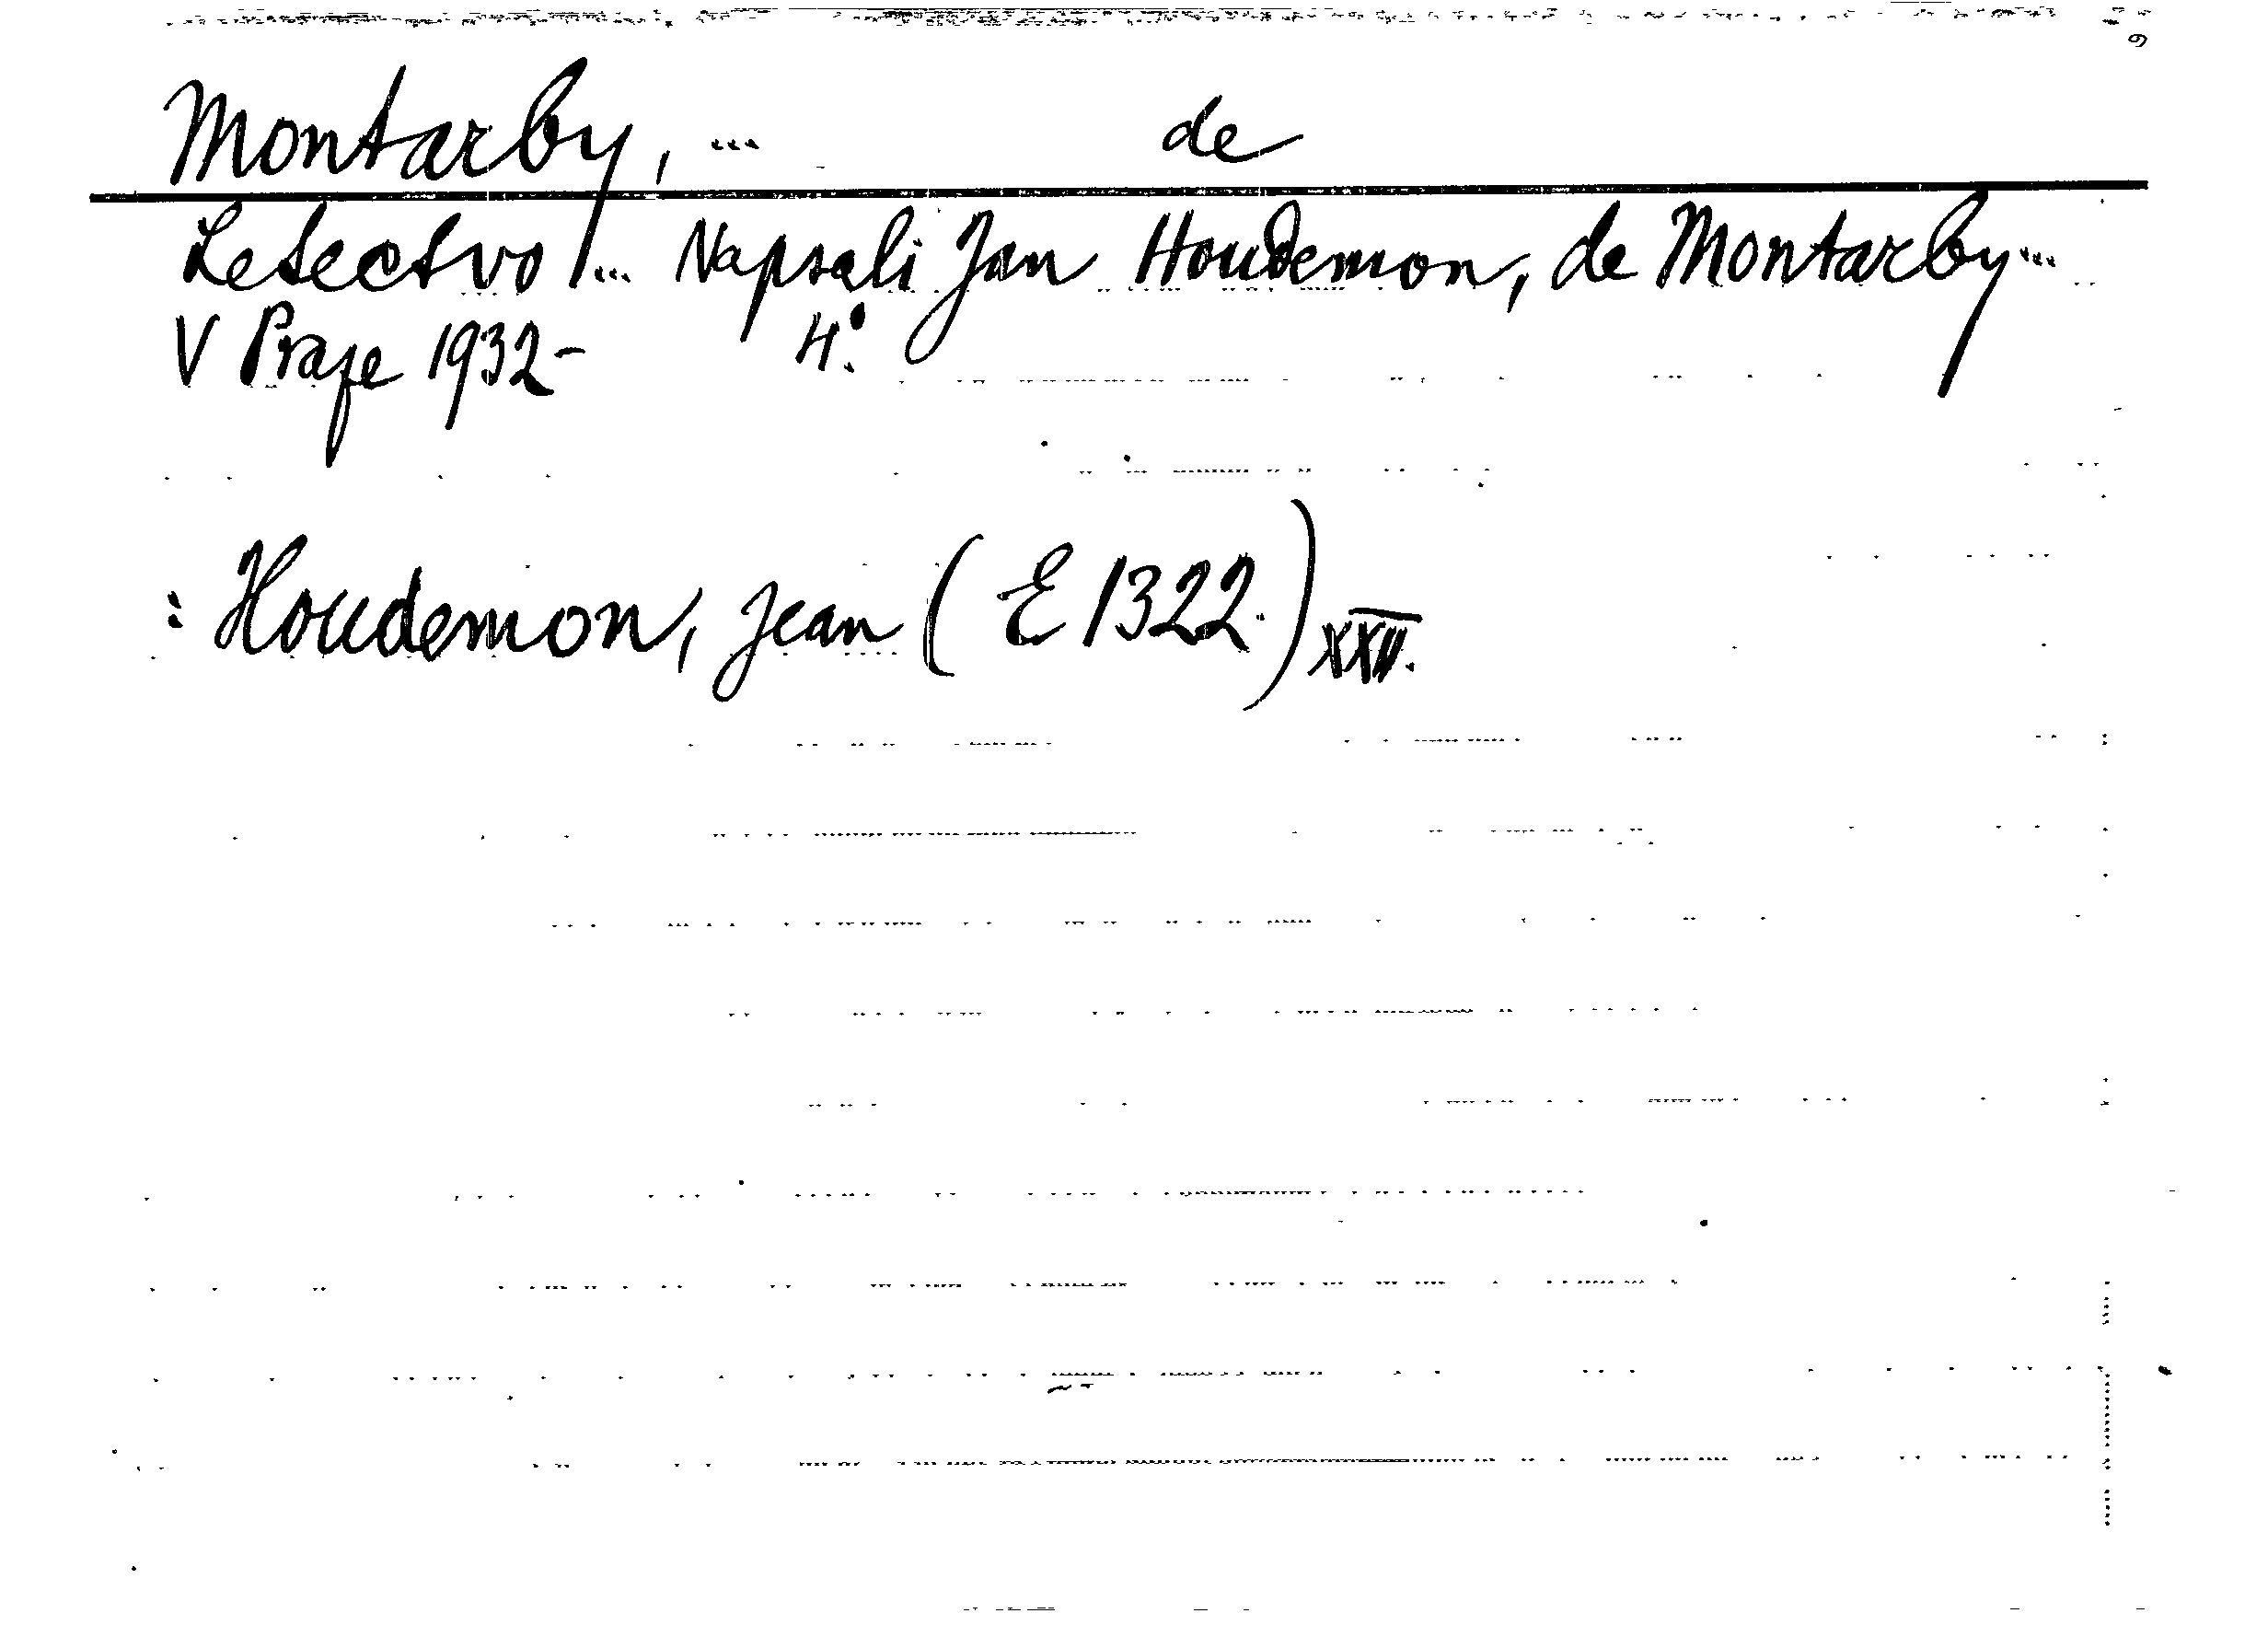 Montarby, ... de
Letectvo ... Napsali Jan Houdemon, de Montarby...
V Praze 1932- 4°.
: Houdemon, Jean (E 1322.)